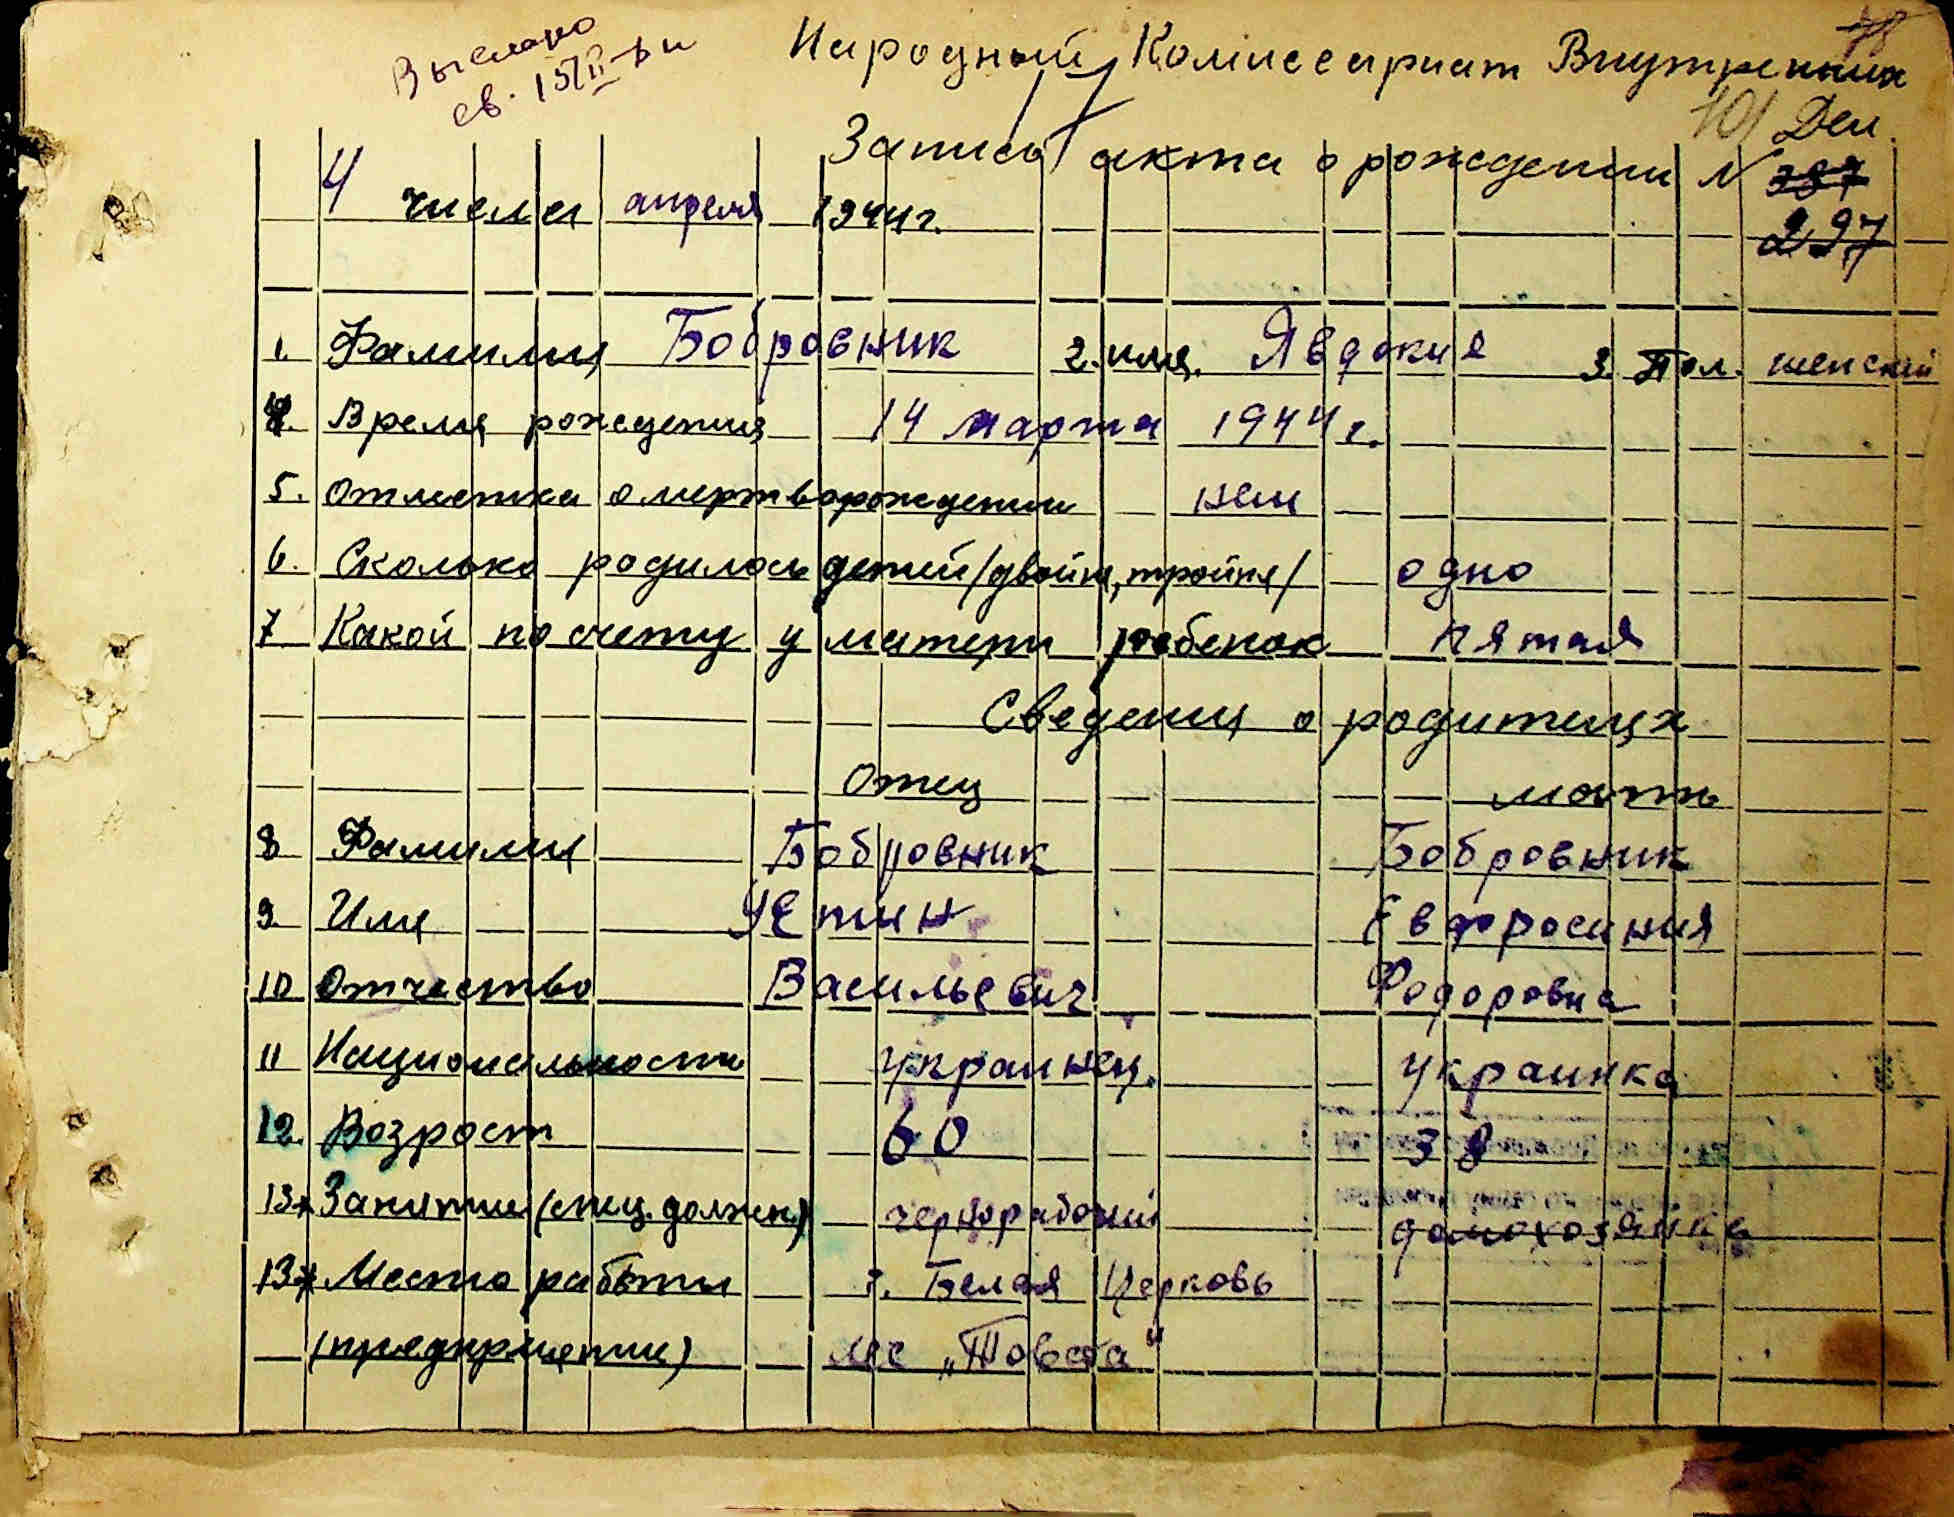 Выслано
св. 15/II
Народный Комиссариат Внутренних
101 Дел.
Запись акта о рождении N 387
297
4 числа апреля 1944 г.
1. Фамилия Бобровник 2. имя. Явдокия 3. Пол. женский
4. Время рождения 14 марта 1944 г.
5. Отметка о мертворождении нет
6. Сколько родилось детей /двойня, тройня/ одно
7 Какой по счету у матери ребенок пятая
Сведения о родителях
Отец мать
8 Фамилия Бобровник Бобровник
9. Имя Устин Евфросиния
10 Отчество Васильевич Федоровна
11 Национальность украинец. украинка
12. Возраст 60 38
13. Занятие (спец. должн.) чернорабочий домохозяйка
13 Место работы г. Белая Церковь
(предприятие) лес